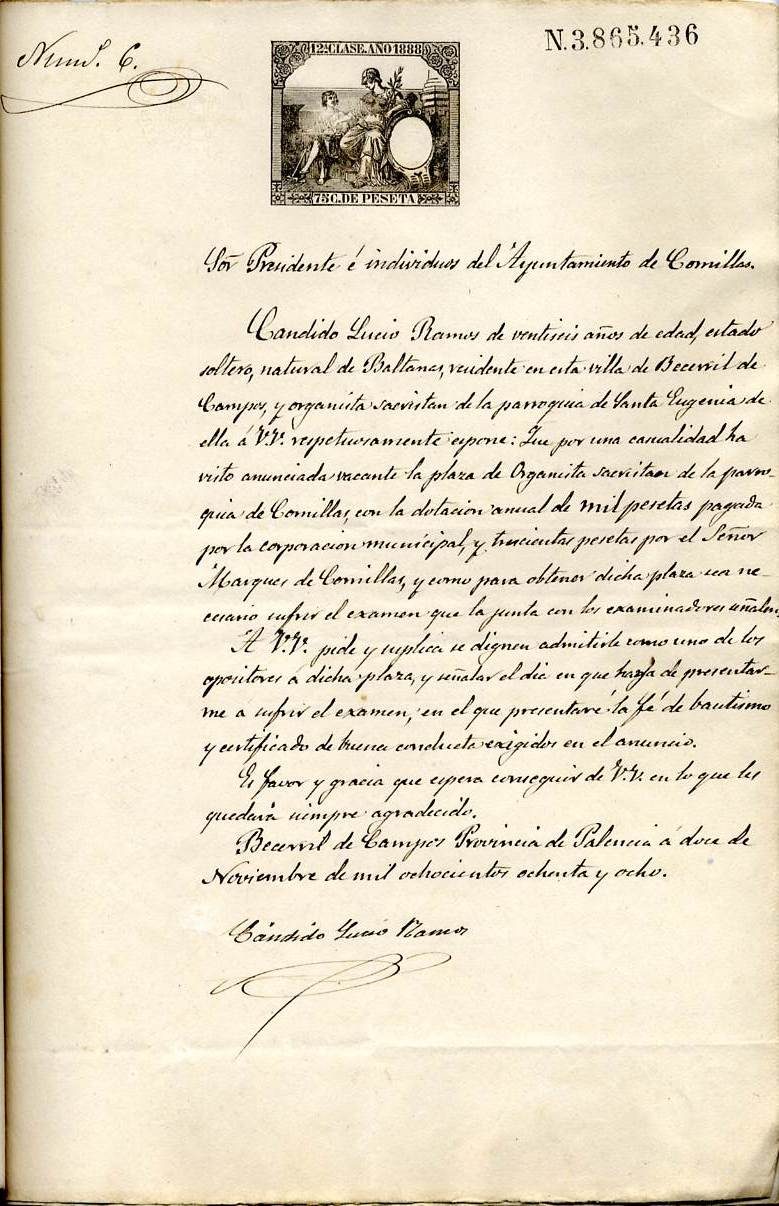 Num. 6.
N.3.865.436
12ª CLASE. AÑO 1888
75 C. DE PESETA
Sor Presidente é individuos del Ayuntamiento de Comillas.
Candido Lucio Ramos de ventiseis años de edad, estado
soltero, natural de Baltanas, residente en esta villa de Becerril de
Campos, y organista sacristan de la parroquia de Santa Eugenia de
ella á V.V. respetuosamente espone: Que por una casualidad ha
visto anunciada vacante la plaza de Organista sacristan de la parro-
quia de Comillas, con la dotacion anual de mil pesetas pagada
por la corporacion municipal, y trescientas pesetas por el Señor
Marques de Comillas, y como para obtener dicha plaza sea ne-
cesario sufrir el examen que la junta con los examinadores señalen,
A V.V. pide y suplica se dignen admitirle como uno de los
opositores á dicha plaza, y señalar el dia en que haya de presentar-
me a sufrir el examen, en el que presentaré la fé de bautismo
y certificado de buena conducta exigidos en el anuncio.
Es favor y gracia que espera conseguir de V.V. en lo que les
quedará siempre agradecido.
Becerril de Campos Provincia de Palencia á doce de
Noviembre de mil ochocientos ochenta y ocho.
Cándido Lucio Ramos